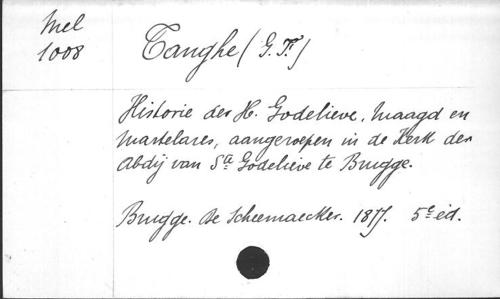 Mel
1008
Tanghe (G. F.)
Historie der H. Godelieve, maagd en
martelares, aangeroepen in de Kerk der
Abdij van Sta Godelieve te Brugge.
Brugge. De Scheemaecker. 5e éd.